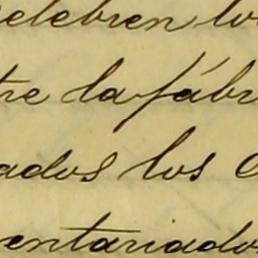 celebren los
tre la fábri
ados los
entariados